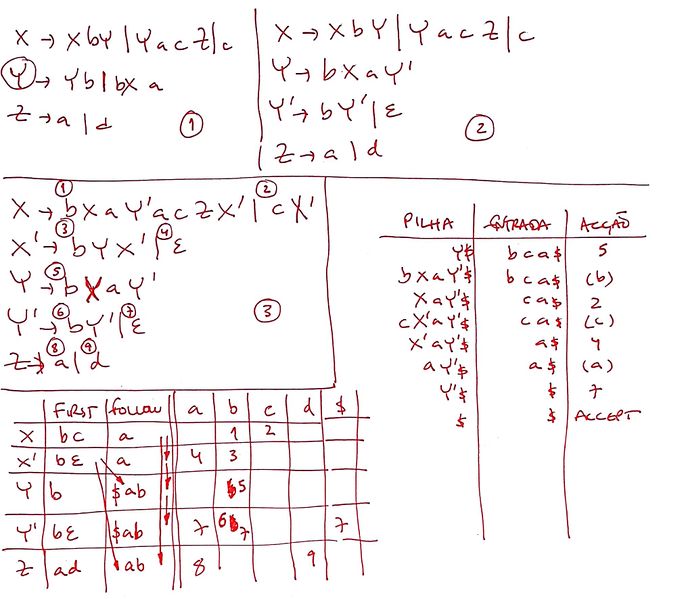 X → XbY | YacZ | c
Y → Yb | bXa
Z → a | d
①
X → XbY | YacZ | c
Y → bXaY'
Y' → bY' | ε
Z → a | d
②
① ②
X → bXaY'acZX' | cX'
③ ④
X' → bYX' | ε
⑤
Y → bXaY'
⑥ ⑦
Y' → bY' | ε
③
⑧ ⑨
Z → a | d
PILHA ENTRADA ACÇÃO
Y$ bca$ 5
bXaY'$ bca$ (b)
XaY'$ ca$ 2
cX'aY'$ ca$ (c)
X'aY'$ a$ 4
aY'$ a$ (a)
Y'$ $ 7
$ $ ACCEPT
FIRST follow a b c d $
X bc a 1 2
X' bε a 4 3
Y b $ab 5
Y' bε $ab 7 6 7 7
Z ad ab 8 9